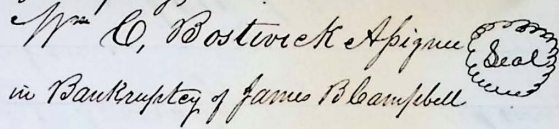 Wm C, Bostwick Assignee Seal
in Bankruptcy of James B Campbell